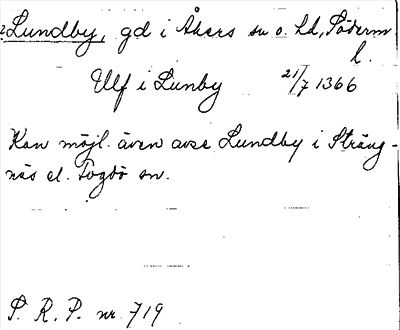 ? Lundby, gd i Åkers sn o. hd, Söderm.
l.
Ulf i Lunby 21/7 1366
Kan möjl. även avse Lundby i Sträng-
näs el. Fogdö sn.
S. R. P. nr 719